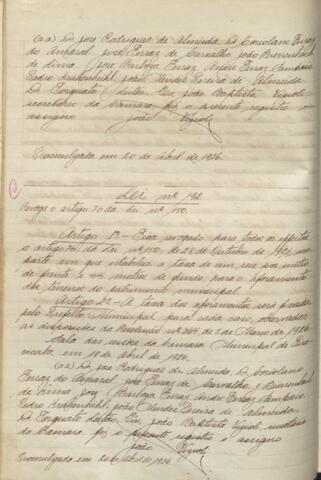 (aa) D. José Rodrigues de Almeida, D. Coriolano Ferraz
do Amaral, José Ferraz de Carvalho, João
de Lima, José Barbosa Ferraz, André Ferraz Sampaio
Pedro Krahenbühl, João Mendes Pereira de Almeida
D. Torquato Leitão. Eu, João Baptista Vizioli,
secretario da Camara, fiz o presente registro e
assigno
João Vizioli
Promulgada em 20 de abril de 1926.
Lei nº 192
Revoga o artigo 76 da lei nº 150.
Artigo 1º - Fica revogado, para todos os effeitos,
o artigo 76 da Lei nº 150, de 28 de Outubro de 1921, na
parte em que estabelece a taxa de um reis por metro
de frente e 44 metros de fundo, para o aforamento
dos terrenos do patrimonio municipal.
Artigo 2º - A taxa dos aforamentos será fixada
pelo Prefeito Municipal, para cada caso, observadas
as disposições da Resolução nº de 5 de Março de 1926.
Sala das sessões da Camara Municipal de Pira-
cicaba, em 19 de Abril de 1926.
(aa) D. José Rodrigues de Almeida, D. Coriolano
Ferraz do Amaral, José Ferraz de Carvalho, J.
de Lima, José Barbosa Ferraz, André Ferraz Sampaio
Pedro Krahenbühl, João Mendes Pereira de Almeida
D. Torquato Leitão. Eu, João Baptista Vizioli, secretario
da Camara, fiz o presente registo e assigno
João Vizioli
Promulgada em 20 de abril de 1926